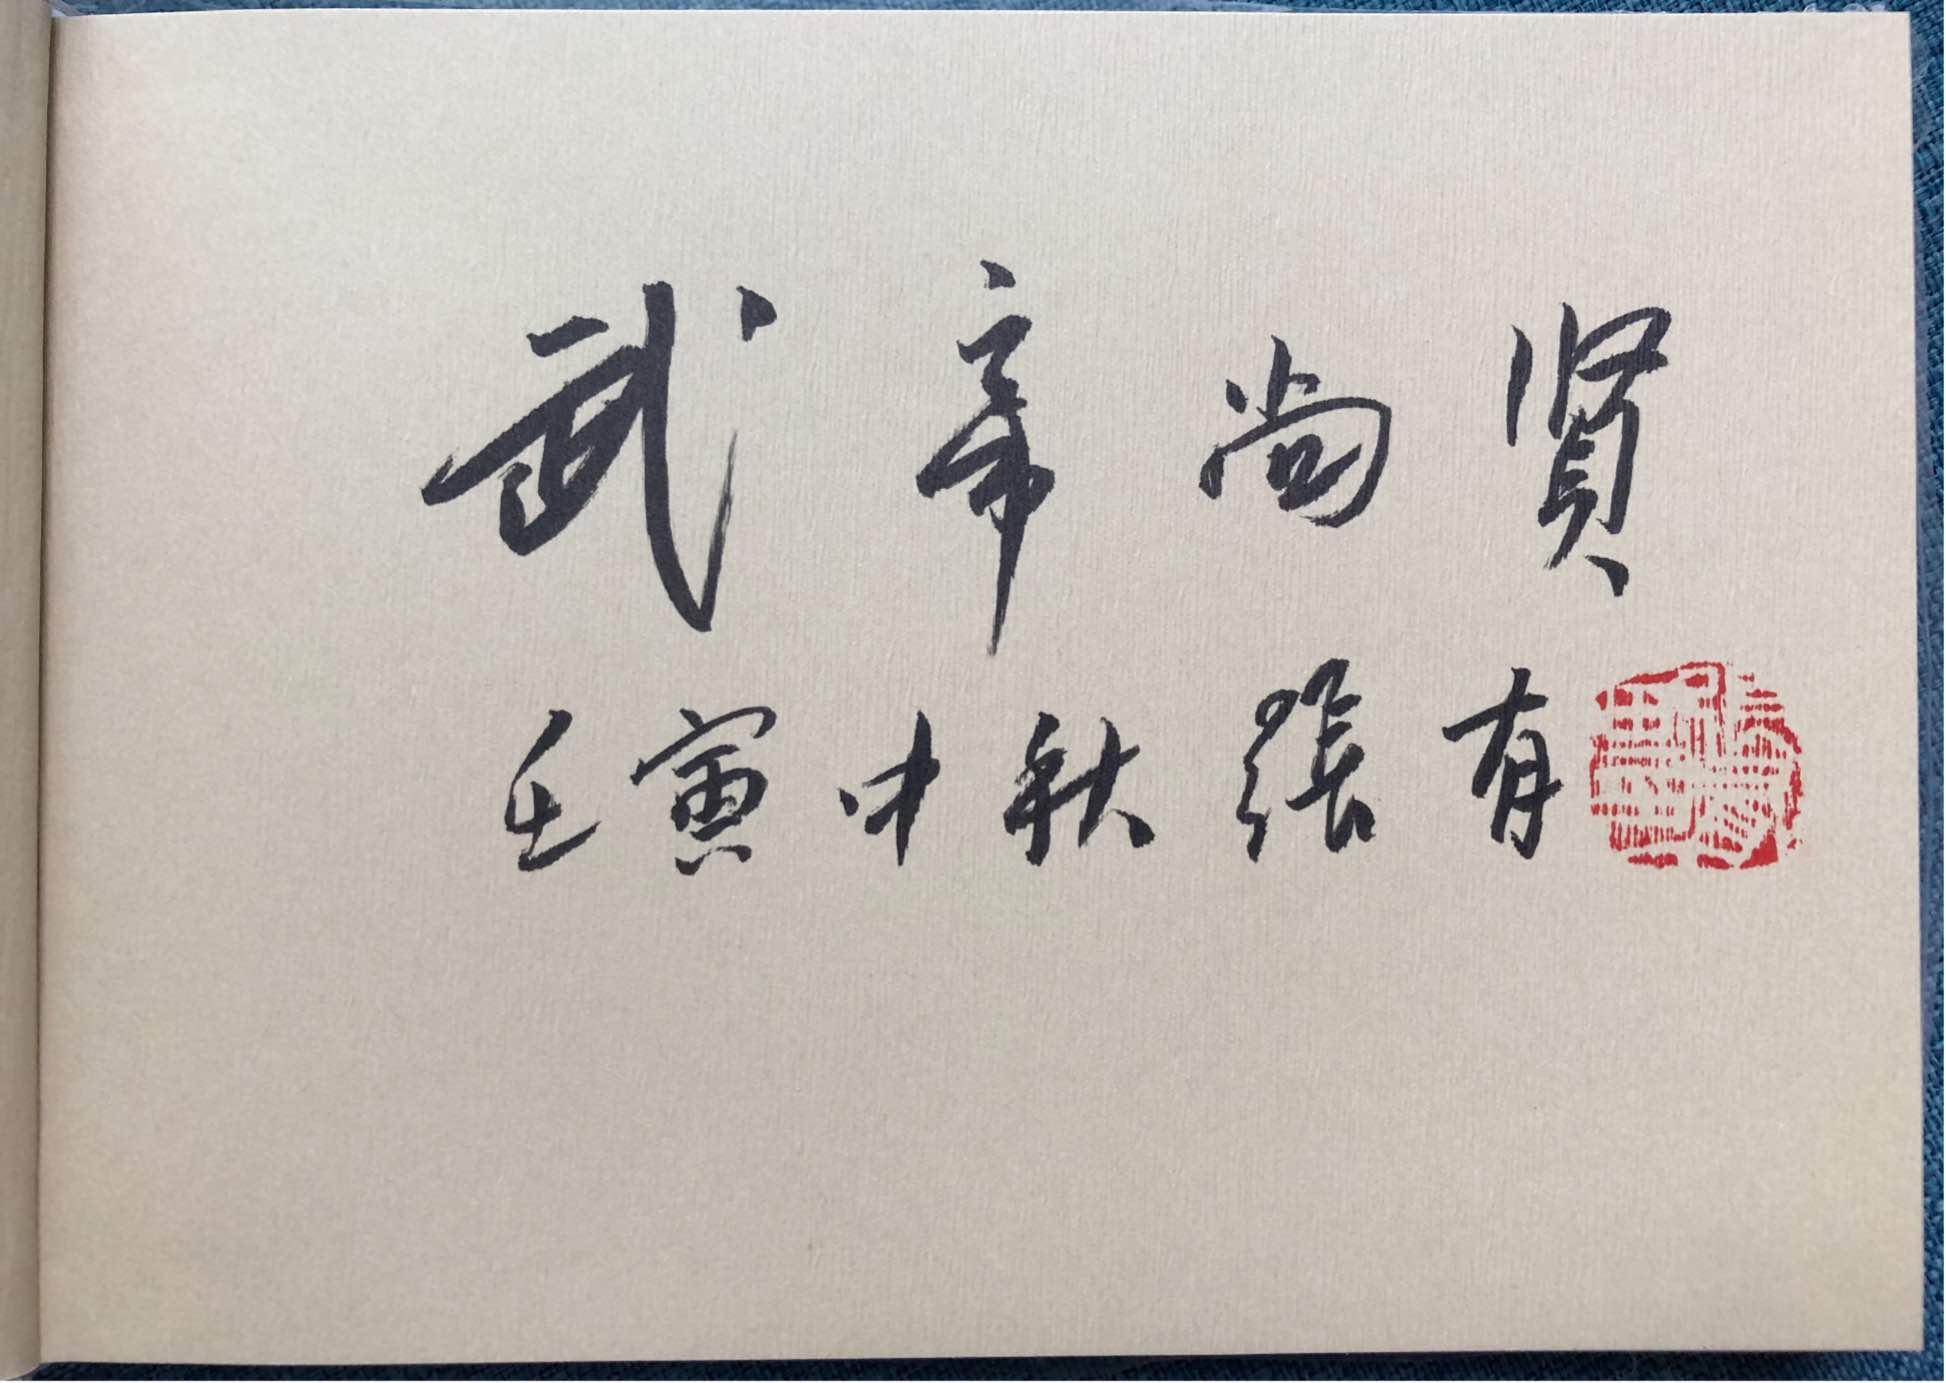 武帝尚贤
壬寅中秋張有